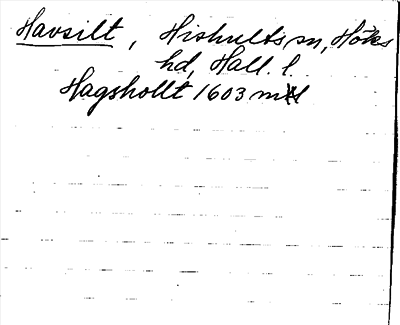 Havsilt, Hishults sn, Höks
hd, Hall. l.
Hagshollt 1603